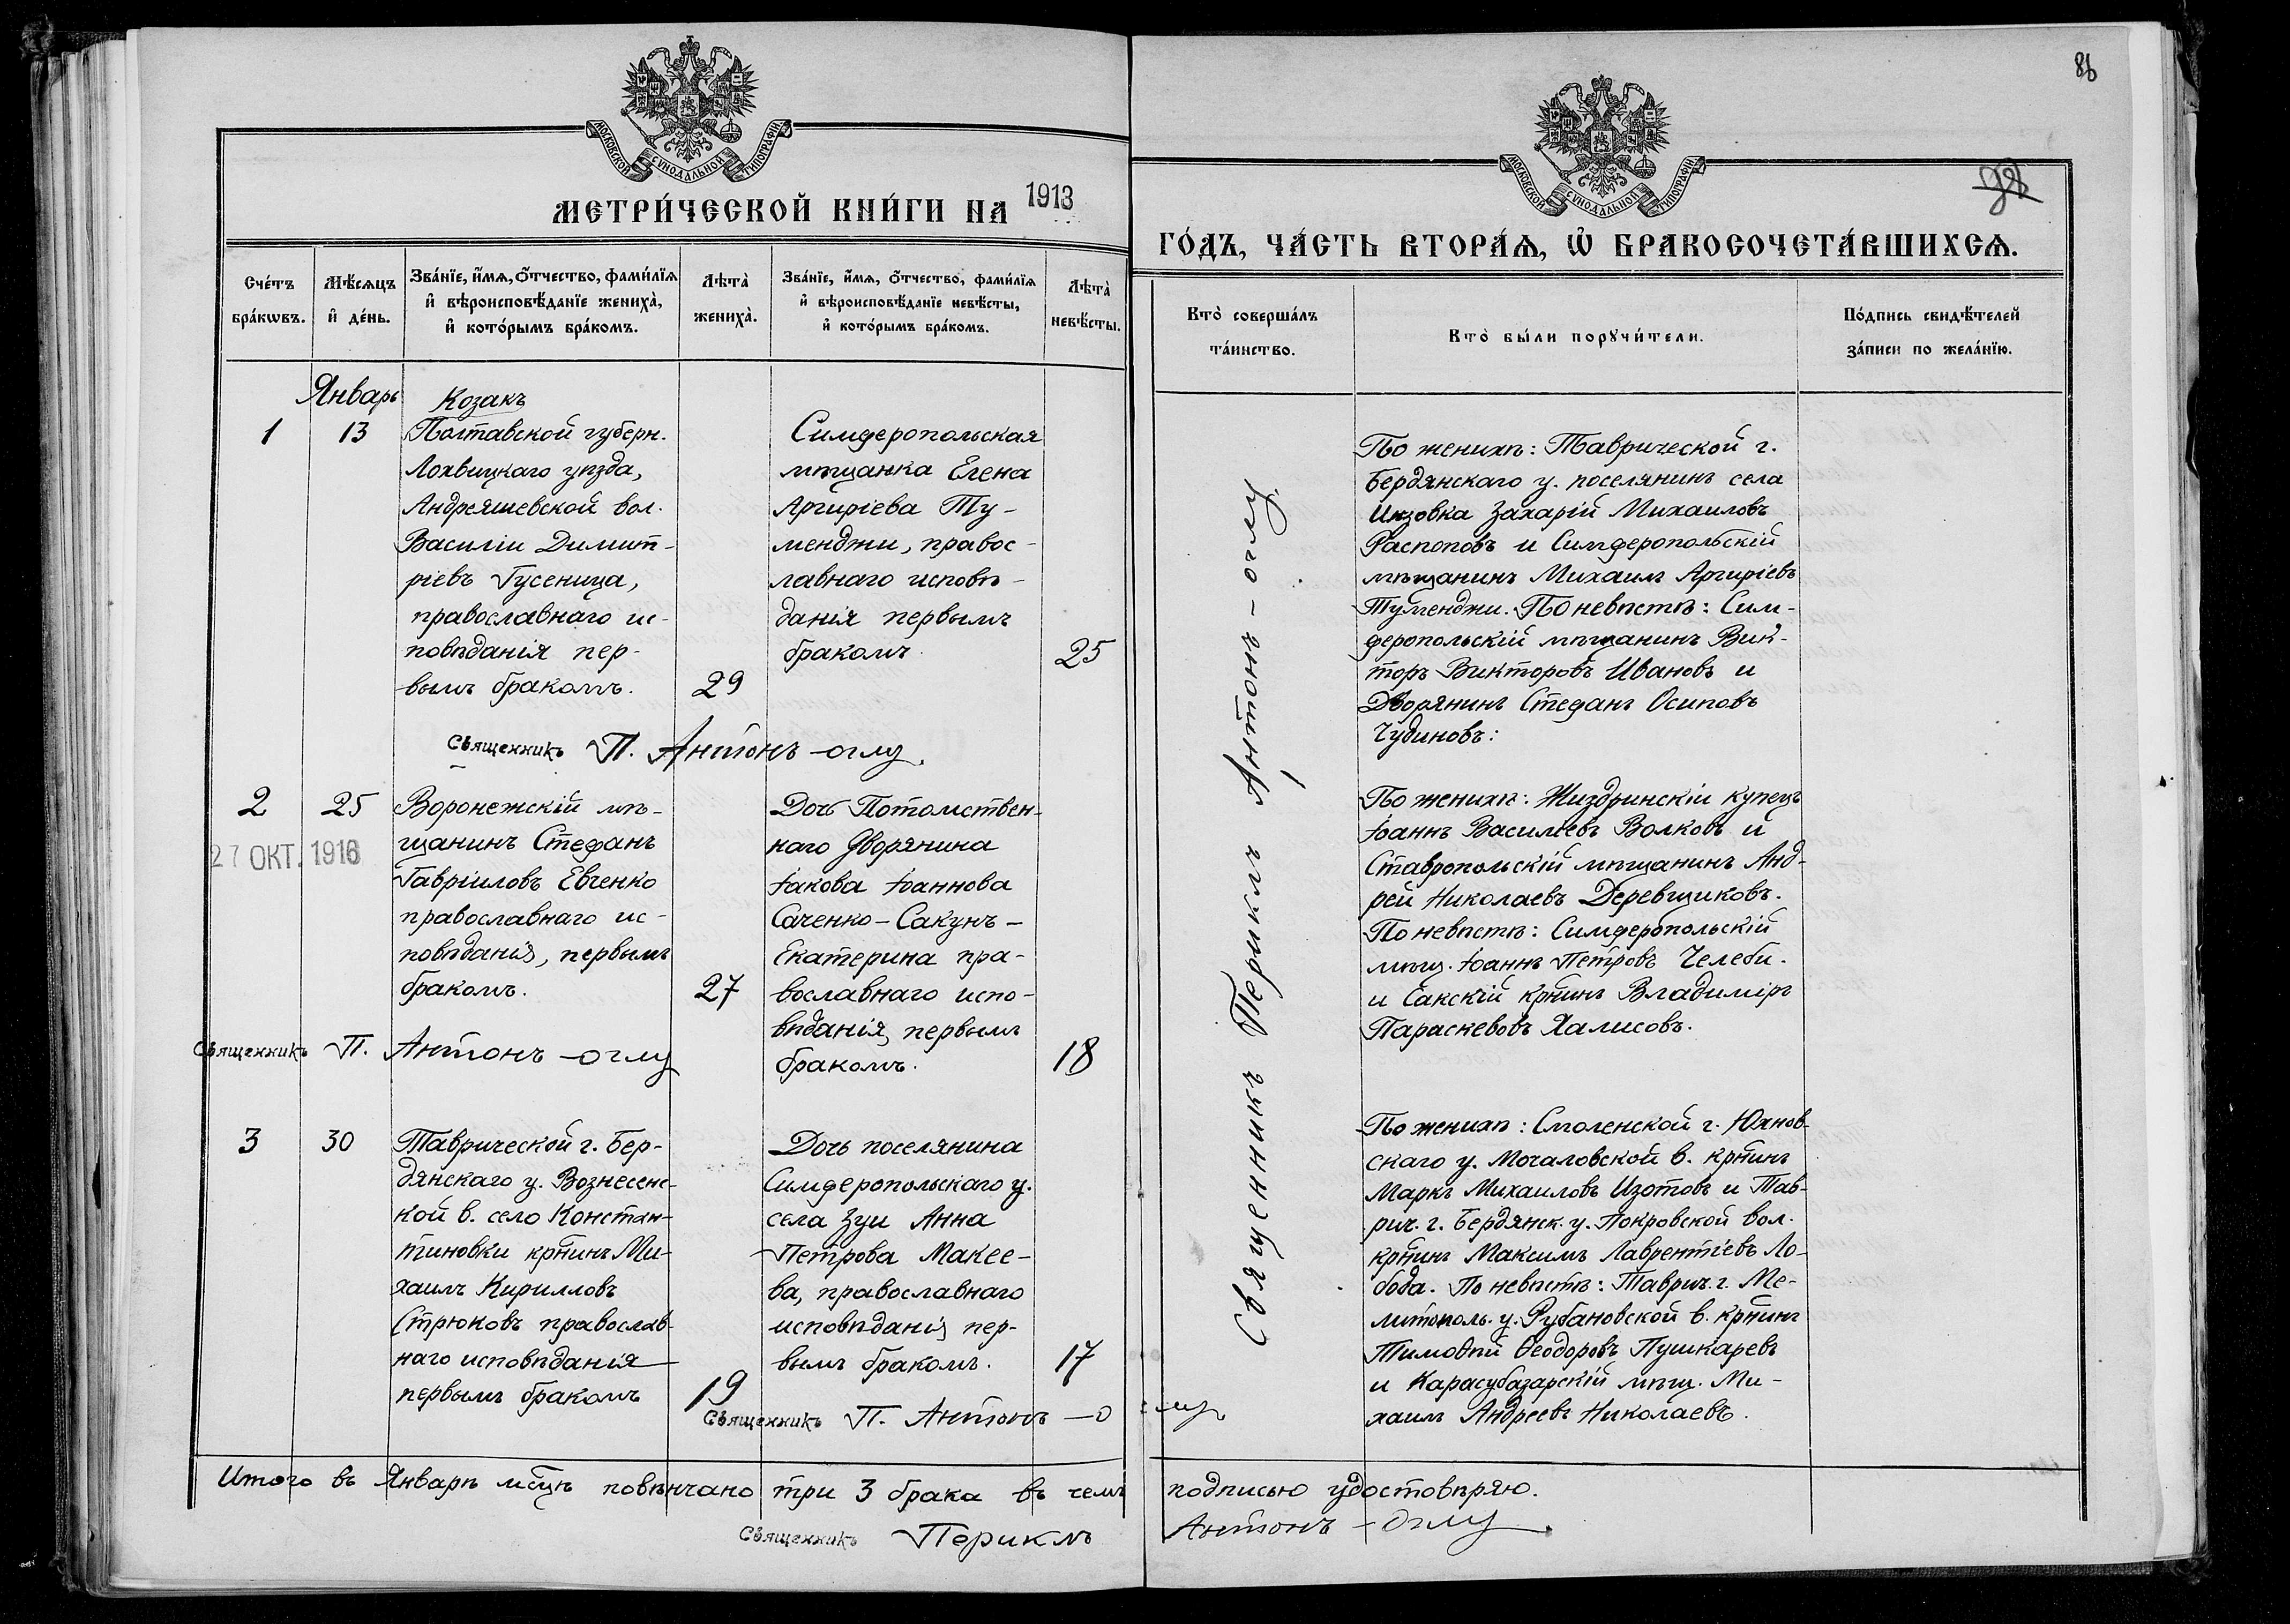 86
98
МОСКОВСКОЙ СУНОДАЛЬНОЙ ТИПОГРАФІИ
МОСКОВСКОЙ СУНОДАЛЬНОЙ ТИПОГРАФІИ
МЕТРИ́ЧЕСКОЙ КНИ́ГИ НА 1913
ГО́ДЪ, ЧА́СТЬ ВТОРА́Я, Ѡ БРАКОСОЧЕТА́ВШИХСЯ.
Сче́тъ бра́кѡвъ.
Мѣ́сяцъ и де́нь.
Зва́нїе, и́мя, о́тчество, фами́лїя
и вѣроисповѣ́данїе жениха̀,
и кото́рымъ бра́комъ.
Лѣта̀ жениха̀.
Зва́нїе, и́мя, о́тчество, фами́лїя
и вѣроисповѣ́данїе невѣ́сты,
и кото́рымъ бра́комъ.
Лѣта̀ невѣ́сты.
Кто̀ соверша́лъ та́инство.
Кто̀ бы́ли порꙋчи́тели.
По́дпись свидѣ́телей за́писи по жела́нїю.
Январь
1
13
Козакъ
Полтавской губерн.
Лохвицкаго уѣзда,
Андреяшевской вол.
Василіи Димит-
ріевъ Гусеница,
православнаго ис-
повѣданія пер-
вымъ бракомъ.
29
Симферопольская
мѣщанка Елена
Аргиріева Ту-
менджи, правос-
лавнаго исповѣ-
данія первымъ
бракомъ.
25
По женихѣ: Таврической г.
Бердянскаго у. поселянинъ села
Инзовка Захарій Михаиловъ
Распоповъ и Симферопольскій
мѣщанинъ Михаилъ Аргиріевъ
Туменджи. По невѣстѣ: Сим-
феропольскій мѣщанинъ Вик-
торъ Викторовъ Ивановъ и
Дворянинъ Стефанъ Осиповъ
Чудиновъ:
Священникъ П. Антонъ-оглу.
2
25
27 ОКТ. 1916
Воронежскій мѣ-
щанинъ Стефанъ
Гавріиловъ Евченко
православнаго ис-
повѣданія, первымъ
бракомъ.
27
Дочь Потомствен-
наго Дворянина
Іакова Іоаннова
Саченко-Сакунъ-
Екатерина пра-
вославнаго испо-
вѣданія, первымъ
бракомъ.
18
По женихѣ: Жиздринскіи купецъ
Іоаннъ Василіевъ Волковъ и
Ставропольскій мѣщанинъ Анд-
рей Николаевъ Деревщиковъ.
По невѣстѣ: Симферопольскій
мѣщ. Іоаннъ Петровъ Челеби.
и Сакскій крнинъ Владиміръ
Параскевовъ Халисовъ.
Священникъ П. Антонъ-оглу
3
30
Таврической г. Бер-
дянскаго у. Вознесенс-
кой в. село Констан-
тиновки крнинъ Ми-
хаилъ Кирилловъ
Стрюковъ православ-
наго исповѣданія
первымъ бракомъ
19
Дочь поселянина
Симферопольскаго у.
села Зуи Анна
Петрова Макее-
ва, православнаго
исповѣданія пер-
вымъ бракомъ.
17
По женихѣ: Смоленской г. Юхнов-
скаго у. Мочаловской в. крнинъ
Маркъ Михаиловъ Изотовъ и Тав-
рич. г. Бердянск. у. Покровской вол.
крнинъ Максимъ Лаврентіевъ Ло-
бода. По невѣстѣ: Таврич. г. Ме-
литополь. у. Рубановской в. крнинъ
Тимоѳѣй Ѳеодоровъ Пушкаревъ
и Карасубазарскій мѣщ. Ми-
хаилъ Андреевъ Николаевъ.
Священникъ П. Антонъ-оглу
Священникъ Периклъ Антонъ-оглу.
Итого въ Январѣ мсцѣ повѣнчано три 3 брака въ чемъ подписью удостовѣряю.
Священникъ Периклъ Антонъ-Оглу.